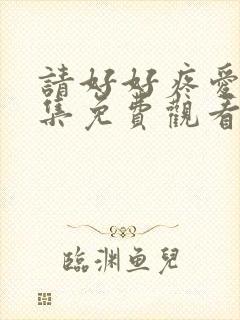 請好好疼愛
集免費觀看
臨渊鱼兒